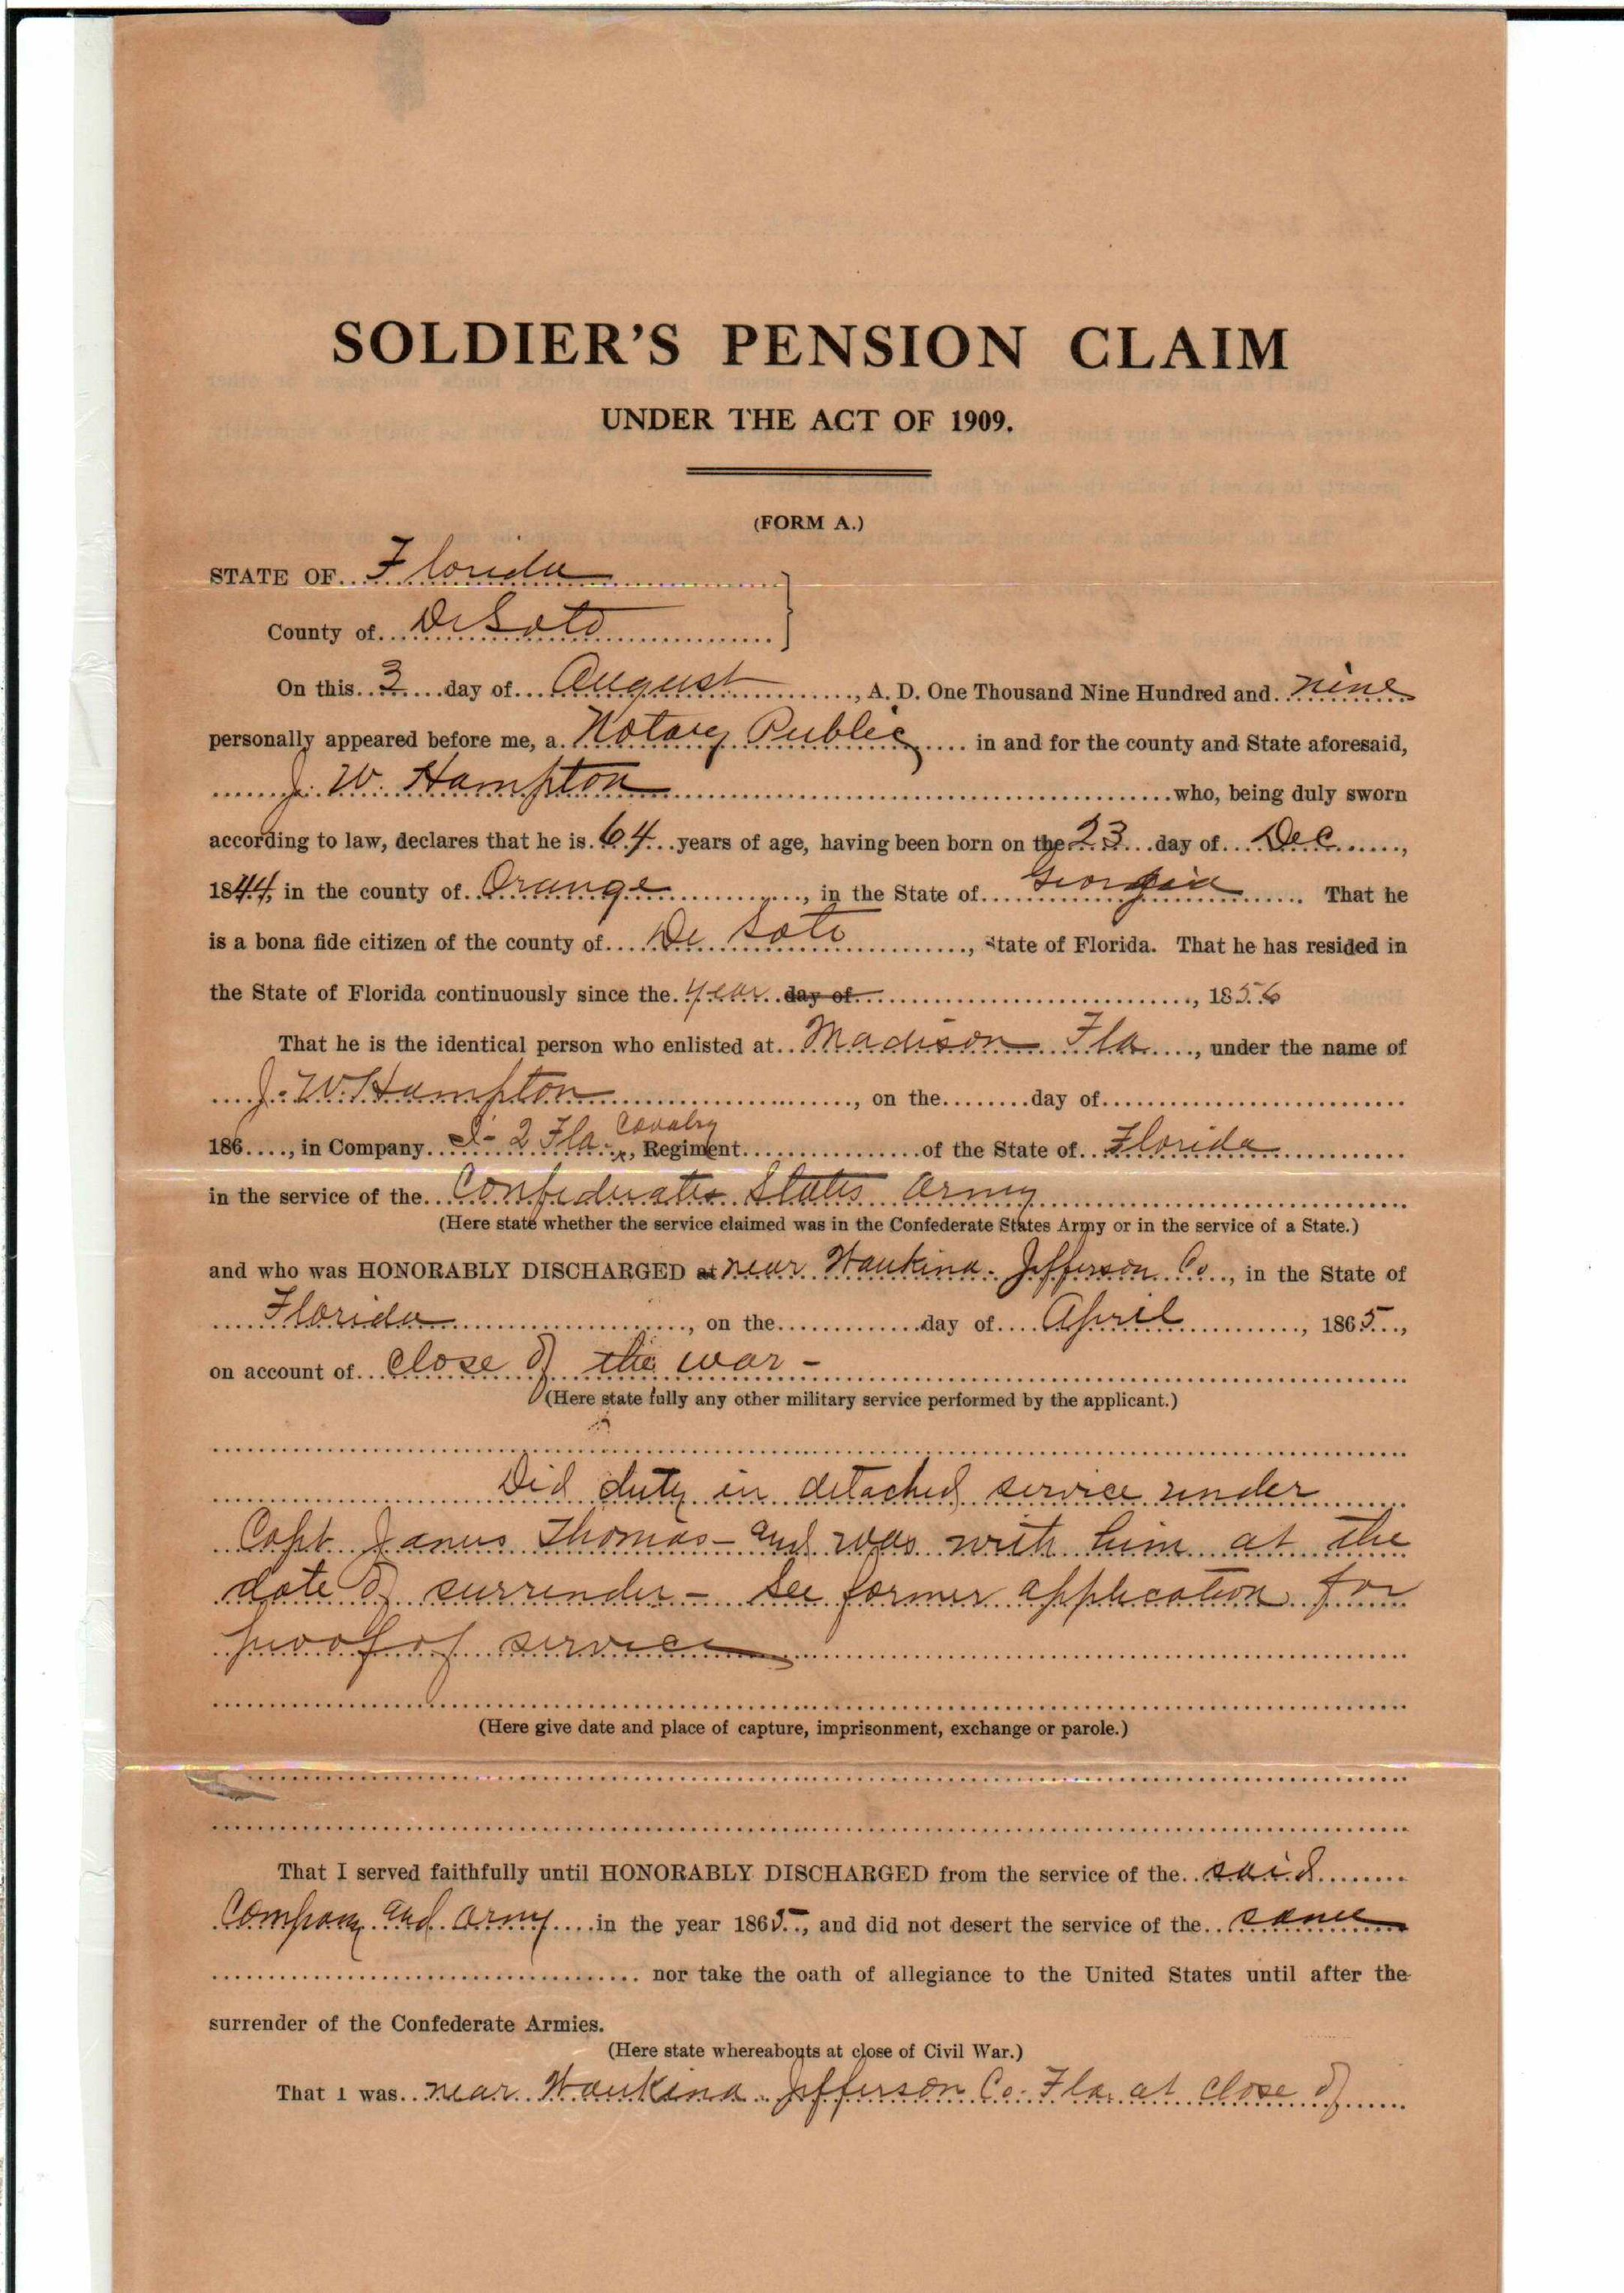 SOLDIER'S PENSION CLAIM
UNDER THE ACT OF 1909.
(FORM A.)
STATE OF Florida
County of DeSoto
On this 3 day of August, A. D. One Thousand Nine Hundred and nine
personally appeared before me, a Notary Public in and for the county and State aforesaid,
J. W. Hampton who, being duly sworn
according to law, declares that he is 64 years of age, having been born on the 23 day of Dec,
1844, in the county of Orange, in the State of Georgia. That he
is a bona fide citizen of the county of De Soto, State of Florida. That he has resided in
the State of Florida continuously since the year day of, 1856
That he is the identical person who enlisted at Madison Fla, under the name of
J. W. Hampton, on the day of
186, in Company - 2 Fla. Cavalry, Regiment of the State of Florida
in the service of the Confederates States Army
(Here state whether the service claimed was in the Confederate States Army or in the service of a State.)
and who was HONORABLY DISCHARGED at near Waukina. Jefferson Co, in the State of
Florida, on the day of April, 1865,
on account of close of the war -
(Here state fully any other military service performed by the applicant.)
Did duty in detached service under
Capt. James Thomas - and was with him at the
date of surrender - See former application for
proof of service
(Here give date and place of capture, imprisonment, exchange or parole.)
That I served faithfully until HONORABLY DISCHARGED from the service of the said
Company and army in the year 1865, and did not desert the service of the same
nor take the oath of allegiance to the United States until after the
surrender of the Confederate Armies.
(Here state whereabouts at close of Civil War.)
That I was near Waukina. Jefferson Co. Fla. at close of